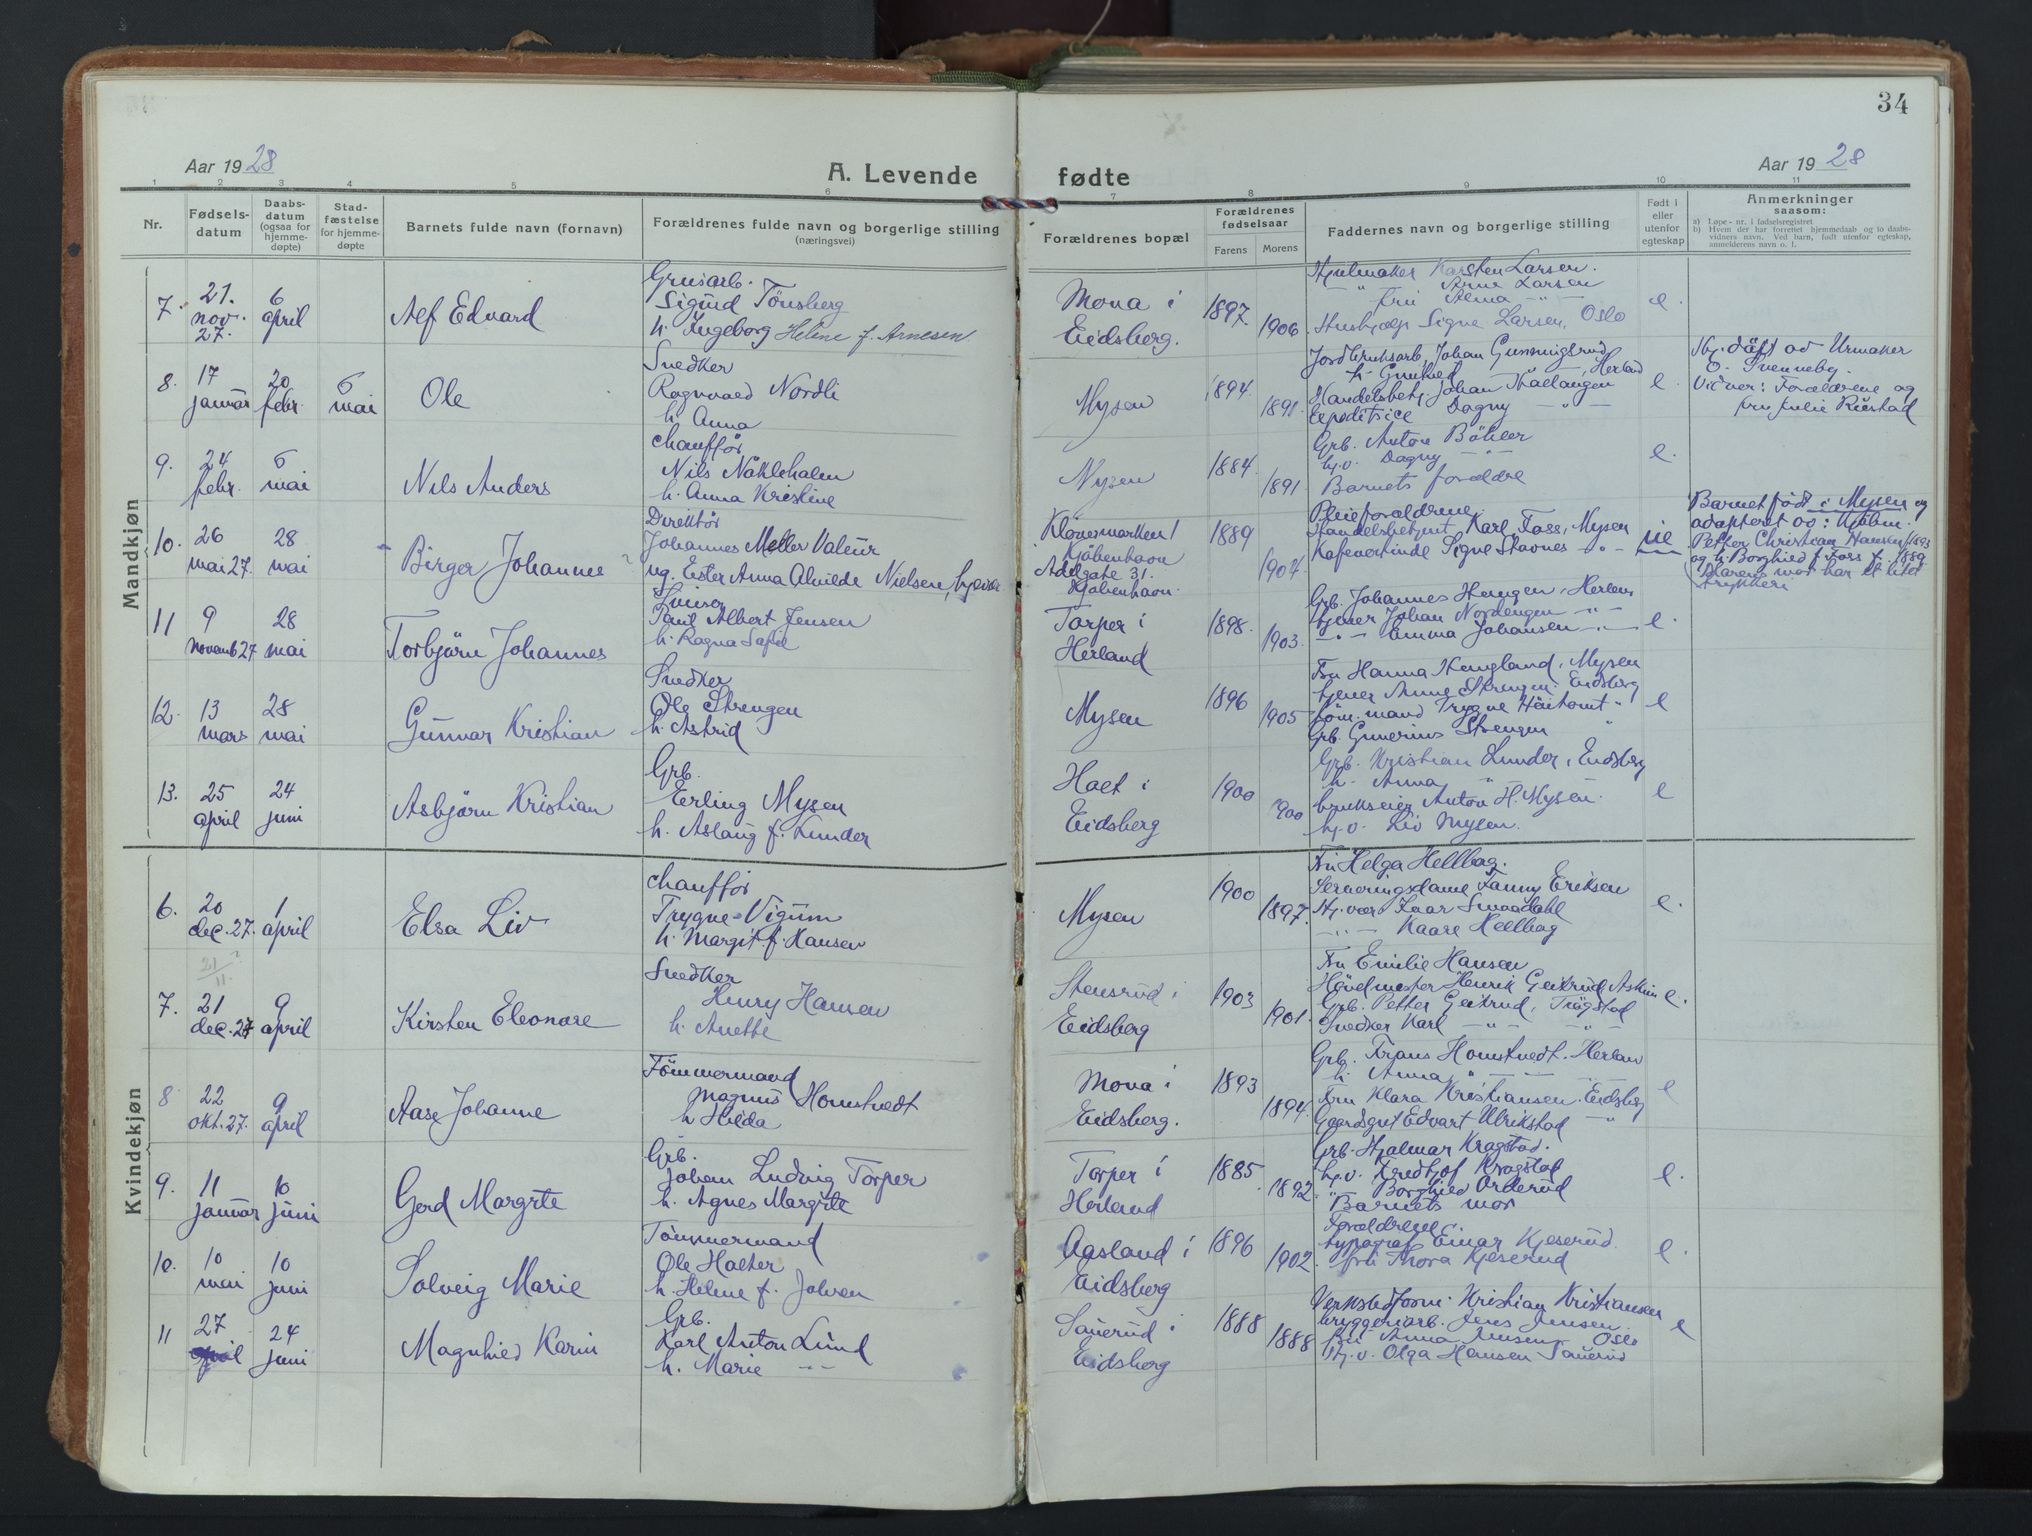 34
Aar 1928
A. Levende fødte
Aar 1928
1 2 3 4 5 6 7 8 9 10 11
Nr.
Fødsels-
datum
Daabs-
datum
(ogsaa for
hjemme-
døpte)
Stad-
fæstelse
for hjemme-
døpte
Barnets fulde navn (fornavn)
Forældrenes fulde navn og borgerlige stilling
(næringsvei)
Forældrenes bopæl
Forældrenes
fødselsaar
Farens Morens
Faddernes navn og borgerlige stilling
Født i
eller
utenfor
egteskap
Anmerkninger
saasom:
a) Løpe-nr. i fødselsregistret
b) Hvem der har forrettet hjemmedaab og to daabs-
vidners navn. Ved barn, født utenfor egteskap,
anmelderens navn o. l.
Mandkjøn
7.
21.
nov.
27.
6
april
Alf Edvard
Grusarb.
Sigurd Tönsberg
h. Ingeborg Helene f. Arnesen
Mona i
Eidsberg.
1897.
1906
Hjulmaker Karsten Larsen.
" Arne Larsen
fru Alma " —
Husbjelp Signe Larsen, Oslo
e.
8.
17
januar
20
febr.
6
mai
Ole
Snedker
Ragnvald Nordli
h. Anna
Mysen
1894.
1891.
Jordbruksarb. Johan
h. Gunhild " , Herland
Handelsbetj. Johan
Expeditrice Dagny — " —
e.
Hj. döpt av Urmaker
O. Svenneby.
Vidner: Forældrene og
fru Julie Riistad
9.
24
febr.
6
mai
Nils Anders
Chafför
Nils
h. Anna Kristine
Mysen
1884.
1891
Grb. Anton Böhler
hj.v. Dagny — " —
Barnets forældre
e.
10.
26
mai 27.
28
mai
Birger Johannes
Direktör
Johannes Møller Valeur
ug. Ester Anna Alvilde Nielsen,
Klövermarken 1
Kjöbenhavn
Adelgate 31.
Kjöbenhavn.
1889
1904
Pleieforældrene
Handelsbetjent Karl Foss, Mysen
Kafevertinde Signe Stavnes — " —
ue
Barnet födt i Mysen og
adopteret av:
Petter Christian Hansen f. 1893
og h. Borghild f. Foss f. 1889
(Barens mor har et litet
trykkeri
11
9
novemb 27
28
mai
Torbjörn Johannes
Paul Albert Jensen
h. Ragna Sofie
Torper i
Herland
1898.
1903.
Grb. Johannes Haugen, Herland
tjener Johan Nordengen — " —
— " — Emma Johansen — " —
e.
12.
13
mars
28
mai
Gunnar Kristian
Snedker
Ole Strengen
h. Astrid
Mysen
1896
1905
Fru Hanna Haugland, Mysen
tjener Anne Strengen. Eidsberg
töm.mand Trygve Häitomt "
Grb. Gunerius Strengen "
e
13.
25
april
24
juni
Asbjörn Kristian
Grb.
Erling Mysen
h. Aslaug f. Lunder
Holt i
Eidsberg
1900
1900
Grb. Kristian Lunder, Eidsberg
h. Anna "
brukseier Anton H. Mysen.
hj.v. Liv Mysen.
e
Kvindekjøn
6.
20
dec. 27.
1
april
Elsa Liv
Chafför
Trygve Vigum
h. Margit f. Hansen
Mysen
1900
1897.
Fru Helga Hellbag.
Serveringsdame Fanny Eriksen
Ivar Smaadahl
— " — Kaare Hellbag
e.
21/11. ?
7.
21
dec. 27
9
april
Kirsten Eleonore
Snedker
Henry Hansen
h. Anette
Stensrud i
Eidsberg
1903
1901.
Fru Emilie Hansen
Hävdmester Henrik Geitrud, Askim
Grb. Petter Geitrud, Trögstad
Snedker Karl — " — — " —
e.
8
22
okt. 27.
9
april
Aase Johanne
Tömmermand
Magnus Homstvedt
h Hilda
Mona i
Eidsberg.
1893
1894.
Grb. Frans Homstvedt. Herland
h. Anna " — —
Fru Klara Kristiansen. Eidsberg
Gaardsgut Edvart Ulrikstad "
e
9.
11
januar
10
juni
Gerd Margrte
Grb.
Johan Ludvig Torper
h. Agnes Margrte
Torper i
Herland
1885.
1892.
Grb. Hjalmar Kragstad.
hj.v. Fredtjof Kragstad
" Borghild Orderud
Barnets mor
e.
10.
10
mai
10
juni
Solveig Marie
Tömmermand
Ole Holter
h. Helene f. Johren
Aasland i
Eidsberg
1896
1902.
Forældrene.
typograf Einar Kjeserud
fru Thora Kjeserud
e.
11
27
april
24
juni
Magnhild Karin
Grb.
Karl Anton Lund
h. Marie — " —
Sauerud i
Eidsberg
1888
1888
Verkstedform. Kristian Kristiansen
bryggeriarb. Jens Jensen.
fru Anna Jensen Oslo
Hj.v. Olga Hansen Sauerud
e